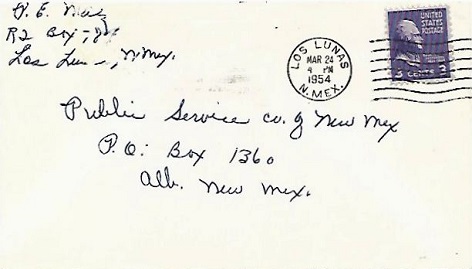 R2 Box
Los
N. Mex.
LOS LUNAS
MAR 24
4 PM
1954
N. MEX.
UNITED
STATES
POSTAGE
3 CENTS 3
Public Service co. of New Mex
P.O. Box 1360
Alb. New Mex.